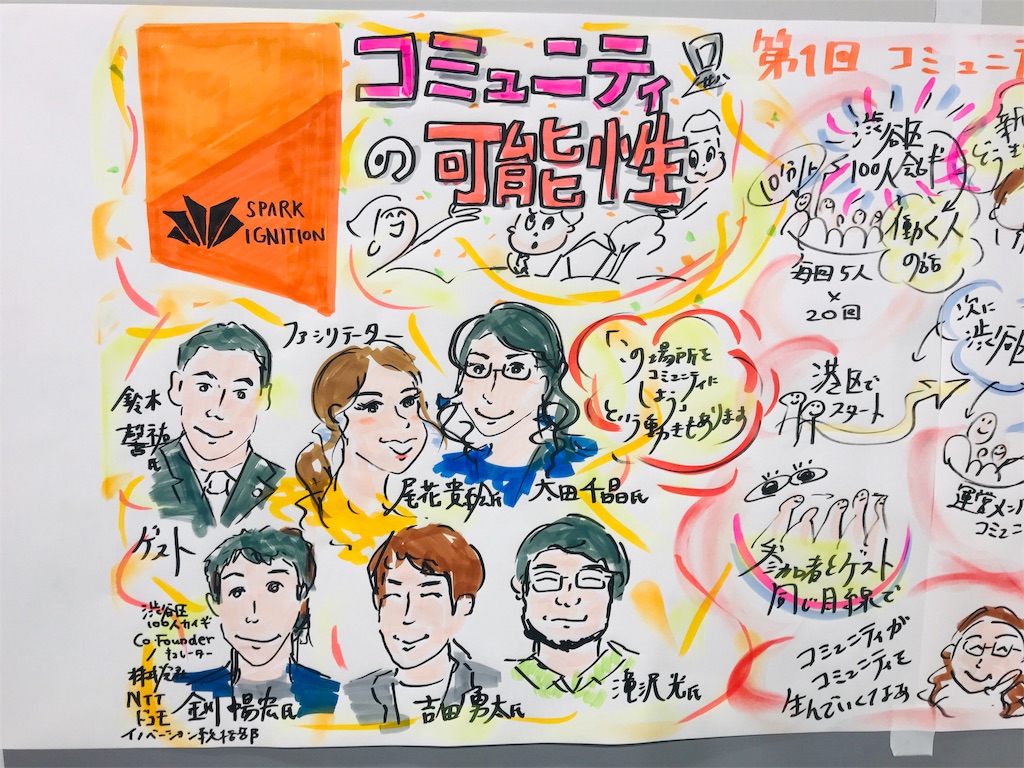 コミュニティ
の可能性
SPARK
IGNITION
ファシリテーター
鈴木
氏
尾花貴
氏
太田千晶氏
「この場所を
コミュニティに
しよう」
という動きもあります
ゲスト
渋谷区
100人カイギ
Co-Founder
/ キュレーター
株式会社
NTT
ドコモ
イノベーション統括部
金川暢宏氏
吉田勇太氏
滝沢光氏
第1回 コミュニテ
渋谷区
100人会議
10分/人
働く人
の話
毎回5人
×
20回
新
どう
港区で
スタート
次に
渋谷区
運営メン
コミュニ
参加者とゲスト
同じ目線で
コミュニティが
コミュニティを
生んでいくなぁ